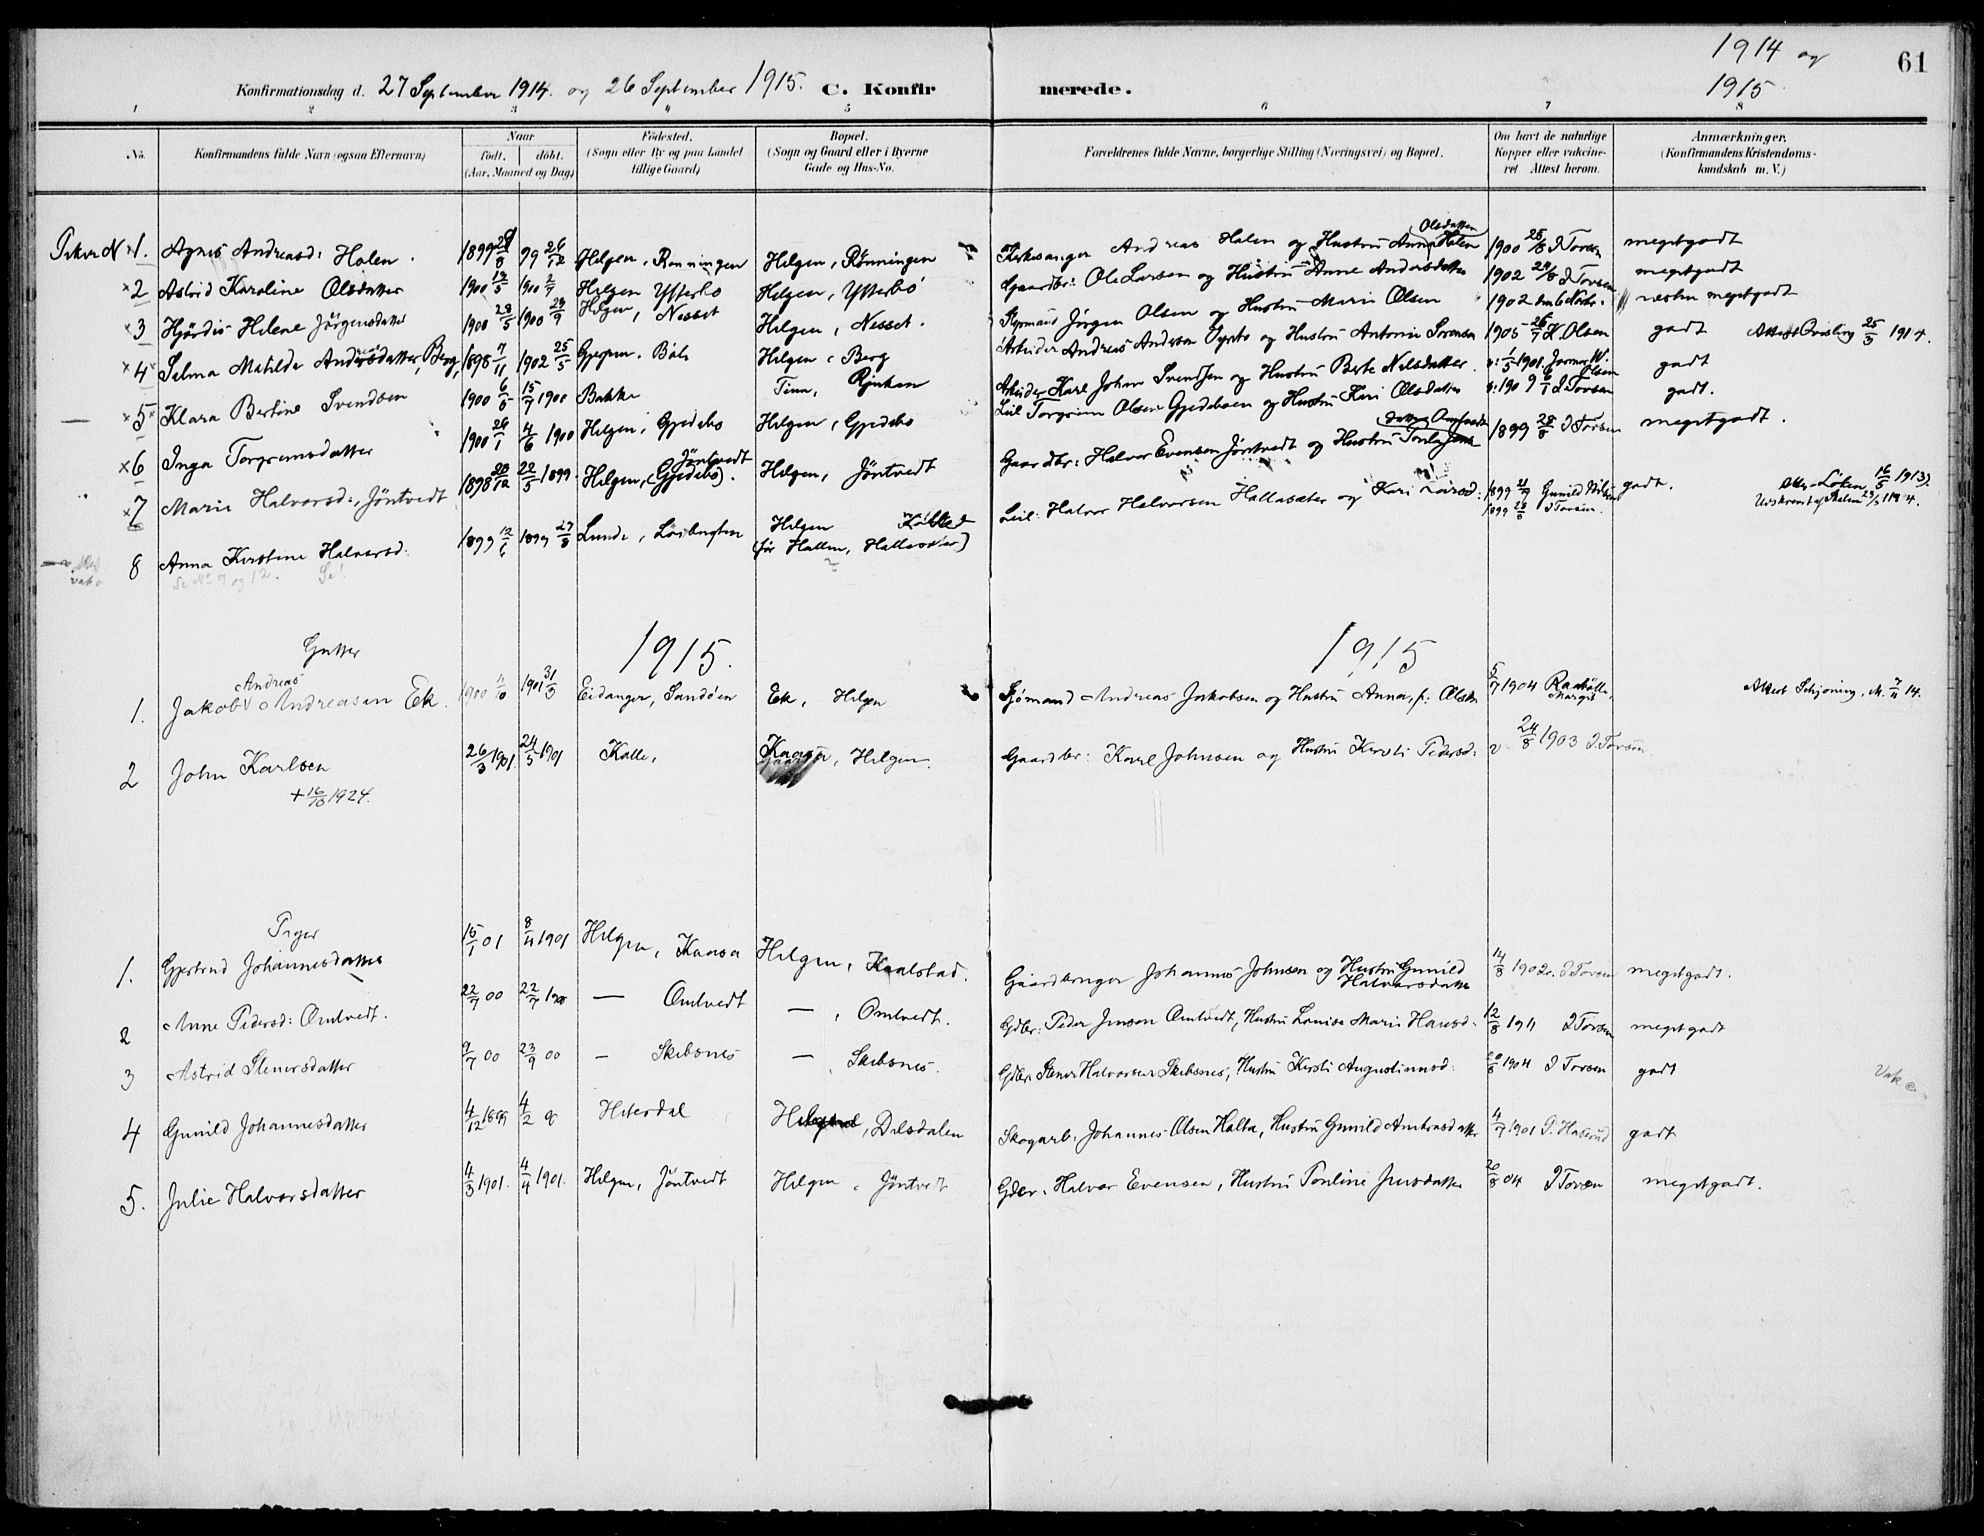 1914 og
1915.
61
Konfirmationsdag d. 27 September 1914. og 26 September 1915. C. Konfir merede.
1 2 3 4 5 6 7 8
No. Konfirmandens fulde Navn (ogsaa Efternavn) Naar födt. döbt. (Aar, Maaned og Dag) Födested. (Sogn eller By og paa Landet tillige Gaard) Bopæl. (Sogn og Gaard eller i Byerne Gade og Hus-No. Forældrenes fulde Navne, borgerlige Stilling (Næringsvei) og Bopæl. Om havt de naturlige Kopper eller vakcineret Attest herom. Anmærkninger. (Konfirmandens Kristendomskundskab m. V.)
1. Agnes Andreasd: Holen. 1899 99 26/12 Helgen, Rønningen Helgen, Rønningen Kirkesanger Andreas Holen og Hustru Anna Olsdatter Holen 1900 25/8 I Torsen megetgodt
2 Astrid Karoline Olsdatter 1900 1900 2/7 Helgen Ytterbø Helgen, Ytterbø Gaardbr: Ole Larsen og Hustru Anne Andersdatter 1902 I Torsen megetgodt
3 Hjørdis Helene Jörgensdatter 1900 28/5 1900 Helgen, Nesset Helgen, Nesset. Styrmand Jörgen Olsen og Hustru Marie Olsen 1902 næsten megetgodt
4 Selma Matilde Andersdatter, Berg, 1898 7/11 1902 25/5 Gjerpen. Böle Helgen, Berg Arbeider Andreas Andersen og Hustru Antonie Sorensen 1905 26/7 K. Olsen godt Attest Qvisling 25/3 1914.
5 Klara Bertine Svendsen 1900 15/7 1900 Bakke Tinn, Rjukan Arbeider Karl Johan Svendsen og Hustru Berte Nilsdatter 1901. Jørmer W. Olsen godt
6 Inga Torgrimsdatter 1900 26/1 4/6 1900 Helgen, Gjedebo Helgen, Gjedebo Leil Torgrim Olsen Gjedeboen og Hustru Kari Olsdatter I Torsen godt.
7 Marie Halvorsd:, Jöntvedt 1898 22/5 1899. Helgen, (Gjedebo). Jöntvedt Helgen, Jöntvedt Gaardbr: Halvor Evensen Jöntvedt og Hustru 1899 28/8 I Torsen megetgodt.
8 Anna Kirstine Halvorsd: 1899 1899 27/8 Lunde, Helgen (før Hallen, Hallasæter) Leil: Halvor Halvorsen Hallasæter og Kari 1899 Gunild Nilsen 1899 I Torsen. godt. Att. Løken 16/5 1913.
Se No 9 og 12. Se!
Gutter 1915. 1915
1. Jakob Andreas Andreasen Ek. 1900 11/10 1901 31/3 Eidanger, Sandöen Ek, Helgen Sjömand Andreas Jakobsen og Hustru Anna, f: Olsen 5/7 1904 Margit Attest Schjoning, M. 7/11 14.
2 John Karlsen 26/3 1901. 24/5 1901 Kalle, Kaasa, Helgen. Gaardbr: Karl Johnsen og Hustru Kirsti Pedersd: v. 24/8 1903 I. Torsen.
+ 16/10 1924.
Piger
1. Gjertrud Johannesdatter 15/1 01 8/4 1901 Helgen, Kaasa Helgen, Kaalstad. Gaardbruger Johannes Johnsen og Hustru Gunild Halvorsdatter 14/8 1902. I Torsen megetgodt.
2 Anne Pedersd: Omtvedt. 22/7 00 22/7 1900 — Omtvedt — , Omtvedt. Gdbr: Peder Jensen Omtvedt, Hustru Louise Marie Hansd. 12/8 1911 I Torsen megetgodt
3 Astrid Stenersdatter 9/7 00 23/9 00 — Skibsnes — , Skibsnes. Gdbr: Stener Halvorsen Skibsnes, Hustru Kirsti Augustinusd: 1904 I Torsen godt Vak
4 Gunild Johannesdatter 4/12 1899 4/2 Hiterdal Helgen, Dalsdalen Skogarb: Johannes Olsen Halta, Hustru Gunild Ambrosdatter 4/7 1901 P. Haserud godt
5. Julie Halvorsdatter 4/3 1901. 4/4 1901. Helgen, Jöntvedt Helgen, Jöntvedt Gdbr. Halvor Evensen, Hustru Tonline Jensdatter 26/8 04 I Torsen megetgodt.